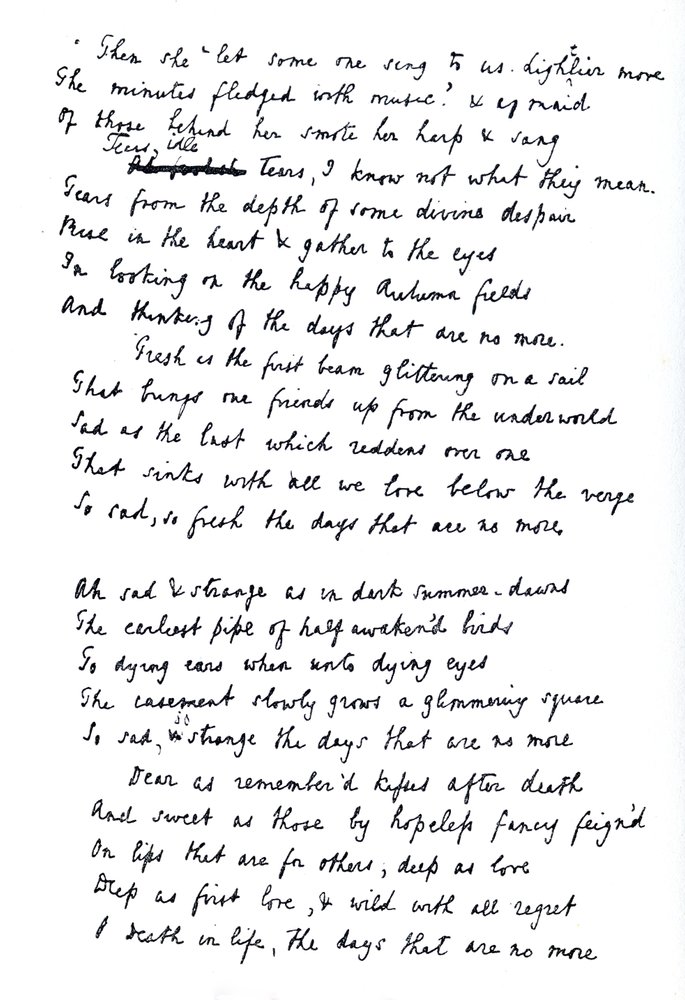 " Then she "let some one sing to us. Lightlier move
The minutes fledged with music." & a maid
Of those behind her smote her harp & sang
Tears, idle
Tears, I know not what they mean.
Tears from the depth of some divine despair
Rise in the heart & gather to the eyes
In looking on the happy Autumn fields
And thinking of the days that are no more.
Fresh as the first beam glittering on a sail
That brings our friends up from the underworld
Sad as the last which reddens over one
That sinks with all we love below the verge
So sad, so fresh the days that are no more,
Ah sad & strange as in dark summer-dawns
The earliest pipe of half awaken'd birds
To dying ears when unto dying eyes
The casement slowly grows a glimmering square
So sad, so strange the days that are no more
Dear as remember'd kisses after death
And sweet as those by hopeless fancy feign'd
On lips that are for others, deep as love
Deep as first love, & wild with all regret
O Death in life, the days that are no more